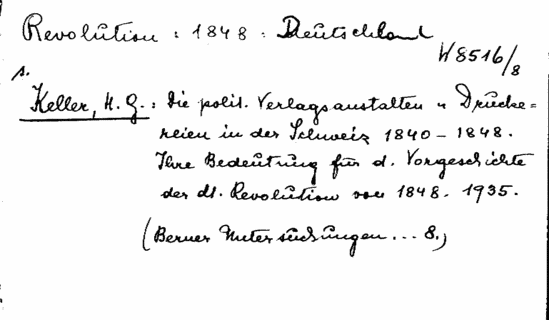 Revolution : 1848 : Deutschland
W 8516/8
s.
Keller, H. G. : Die polit. Verlagsanstalten u Drucke=
reien in der Schweiz 1840 - 1848.
Ihre Bedeutung für d. Vorgeschichte
der dt. Revolution von 1848. 1935.
(Berner Untersuchungen ... 8.)